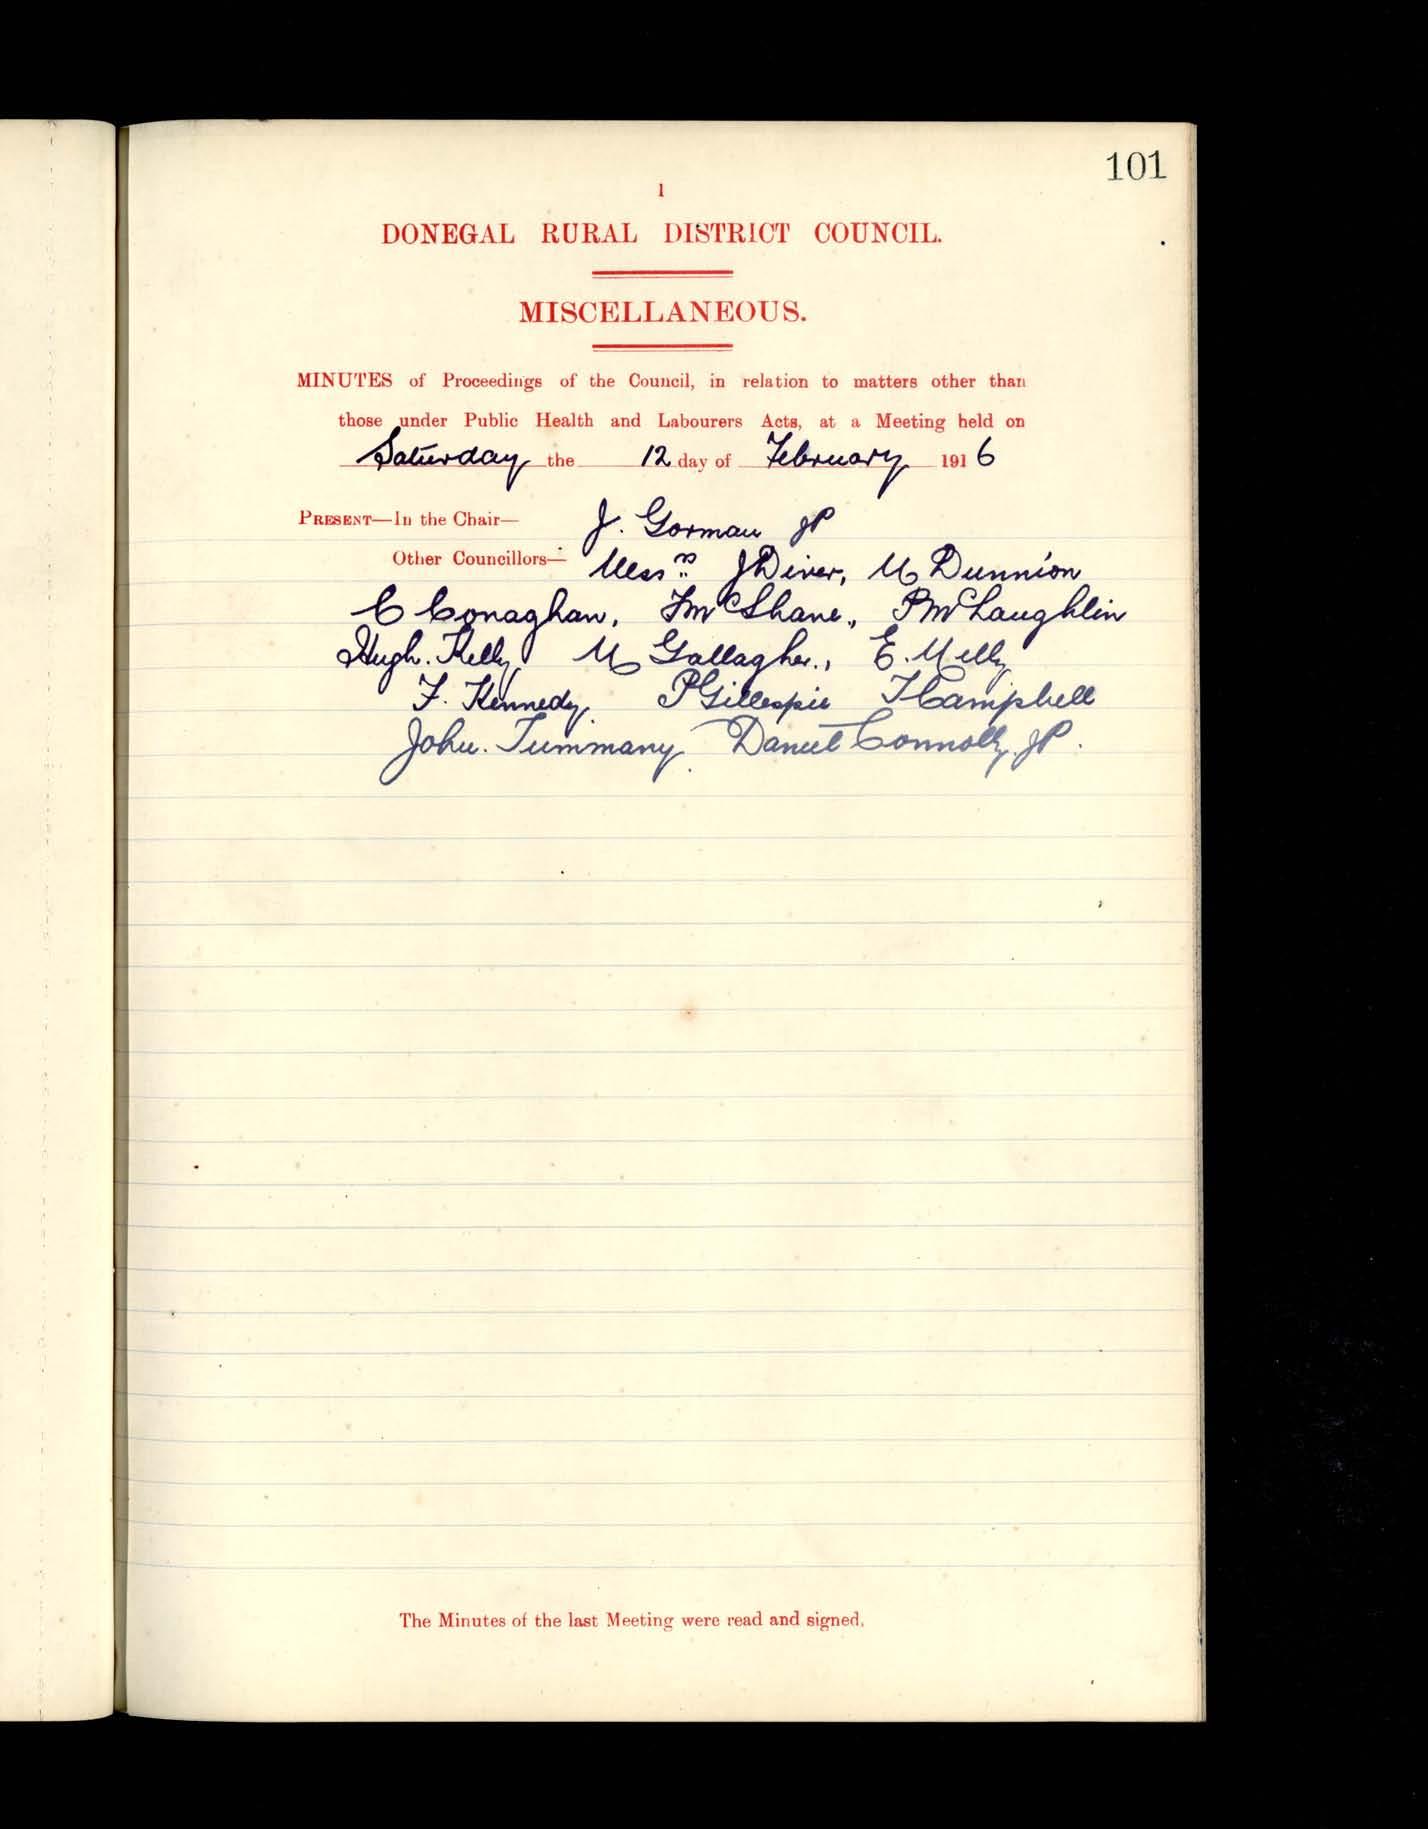 101
1
DONEGAL RURAL DISTRICT COUNCIL.
MISCELLANEOUS.
MINUTES of Proceedings of the Council, in relation to matters other than
those under Public Health and Labourers Acts, at a Meeting held on
Saturday the 12 day of February 1916
PRESENT—In the Chair— J. Gorman JP
Other Councillors— Messrs J Diver, M Dunnion
C Conaghan, F McShane, P McLaughlin
Hugh. Kelly, M Gallagher, E. Melly
F. Kennedy, P Gillespie T Campbell
John. Tummany Daniel Connolly, JP.
The Minutes of the last Meeting were read and signed.